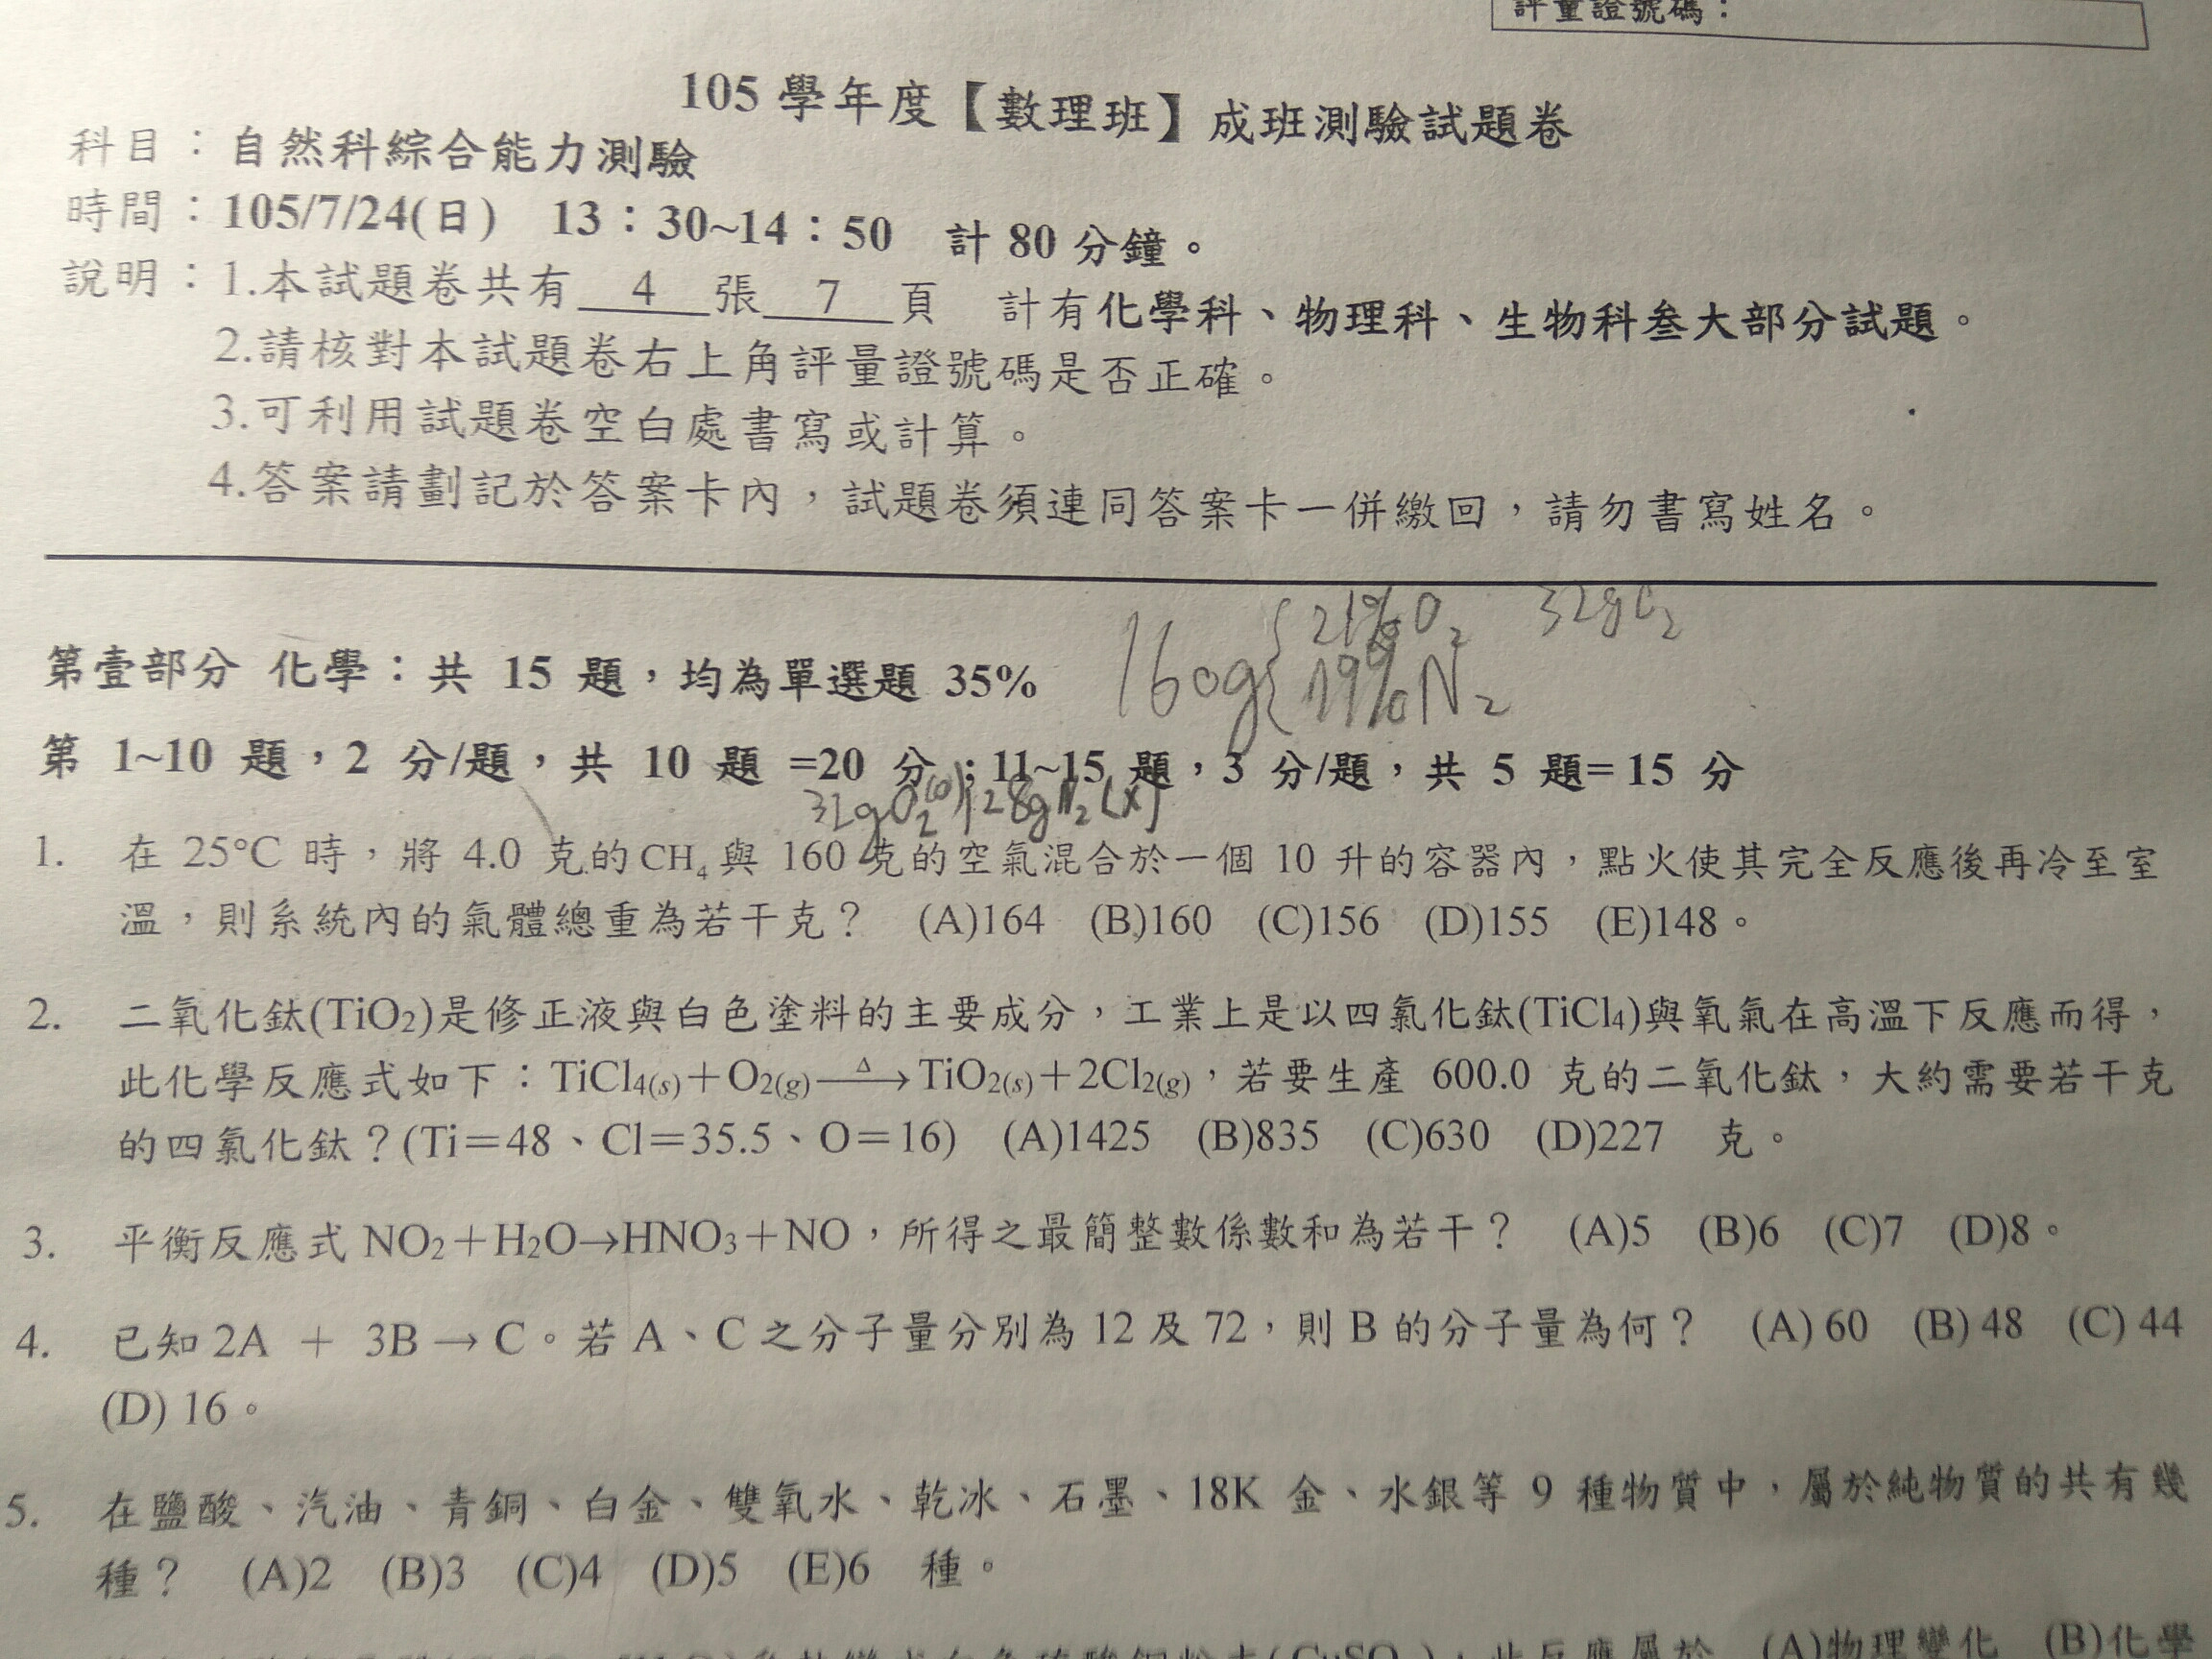 評量證號碼：
105 學年度【數理班】成班測驗試題卷
科目：自然科綜合能力測驗
時間：105/7/24(日) 13：30~14：50 計 80 分鐘。
說明：1.本試題卷共有 4 張 7 頁 計有化學科、物理科、生物科叁大部分試題。
2.請核對本試題卷右上角評量證號碼是否正確。
3.可利用試題卷空白處書寫或計算。
4.答案請劃記於答案卡內，試題卷須連同答案卡一併繳回，請勿書寫姓名。
21% O₂ 32g O₂
160g{ 79% N₂
第壹部分 化學：共 15 題，均為單選題 35%
第 1~10 題，2 分/題，共 10 題 =20 分；11~15 題，3 分/題，共 5 題= 15 分
32g O₂ 28g N₂ (X)
1. 在 25°C 時，將 4.0 克的CH₄與 160 克的空氣混合於一個 10 升的容器內，點火使其完全反應後再冷至室
溫，則系統內的氣體總重為若干克？ (A)164 (B)160 (C)156 (D)155 (E)148。
2. 二氧化鈦(TiO₂)是修正液與白色塗料的主要成分，工業上是以四氯化鈦(TiCl₄)與氧氣在高溫下反應而得，
此化學反應式如下：TiCl₄(s)＋O₂(g)—Δ→TiO₂(s)＋2Cl₂(g)，若要生產 600.0 克的二氧化鈦，大約需要若干克
的四氯化鈦？(Ti＝48、Cl＝35.5、O＝16) (A)1425 (B)835 (C)630 (D)227 克。
3. 平衡反應式 NO₂＋H₂O→HNO₃＋NO，所得之最簡整數係數和為若干？ (A)5 (B)6 (C)7 (D)8。
4. 已知 2A + 3B → C。若 A、C 之分子量分別為 12 及 72，則 B 的分子量為何？ (A) 60 (B) 48 (C) 44
(D) 16。
5. 在鹽酸、汽油、青銅、白金、雙氧水、乾冰、石墨、18K 金、水銀等 9 種物質中，屬於純物質的共有幾
種？ (A)2 (B)3 (C)4 (D)5 (E)6 種。
此反應屬於 (A)物理變化 (B)化學